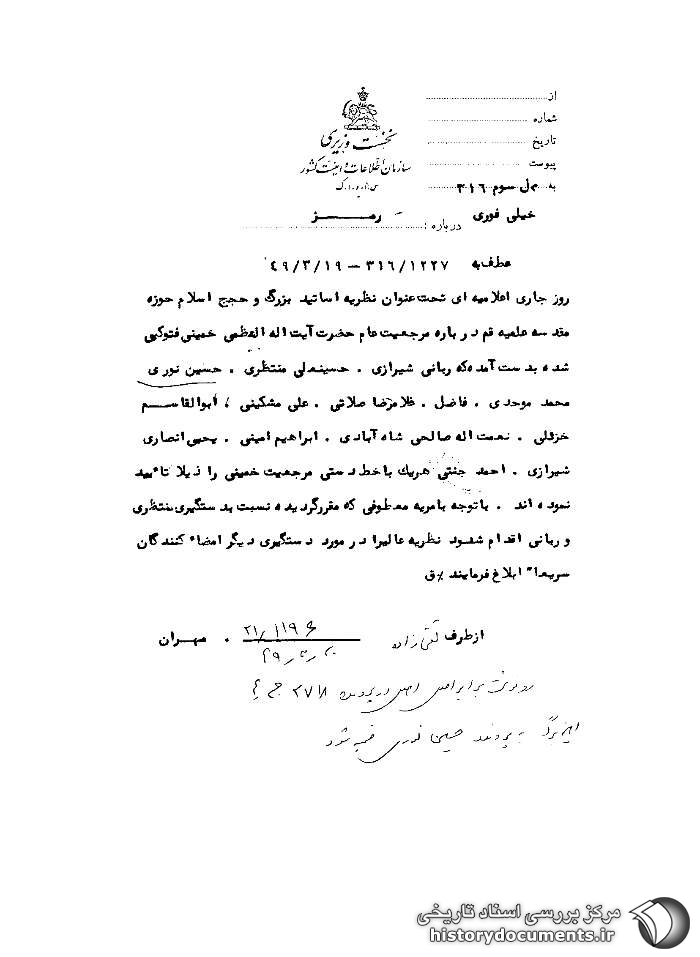 از
شماره
تاریخ
پیوست
به ل سوم ۳۱۶
نخست وزیری
سازمان اطلاعات و امنیت کشور
س.ا.و.ا.ک
خیلی فوری - رمز
درباره :
عطف به ۳۱۶/۱۲۲۷ – ۴۹/۳/۱۹
روز جاری اعلامیه ای تحت عنوان نظریه اساتید بزرگ و حجج اسلام حوزه
مقدسه علمیه قم در باره مرجعیت عام حضرت آیت اله العظمی خمینی فتوکپی
شده بدست آمده که ربانی شیرازی . حسینعلی منتظری . حسین نوری
محمد موحدی . فاضل . غلامرضا صلاتی . علی مشکینی ، ابوالقاسم
خزعلی . نعمت اله صالحی شاه آبادی . ابراهیم امینی . یحیی انصاری
شیرازی . احمد جنتی هریك با خط دستی مرجعیت خمینی را ذیلا تائید
نموده اند . با توجه بامریه معطوفی که مقرر گردیده نسبت بدستگیری منتظری
و ربانی اقدام شود نظریه عالیرا در مورد دستگیری دیگر امضاء کنندگان
سریعا" ابلاغ فرمایند %ق
از طرف تقی زاده ۲۱/۱۱۹۶ . مهران
رونوشت برابر اصل اصل در پرونده ۲۷۸
این برگ به پرونده حسین نوری ضمیمه شود
مرکز بررسی اسناد تاریخی
historydocuments.ir